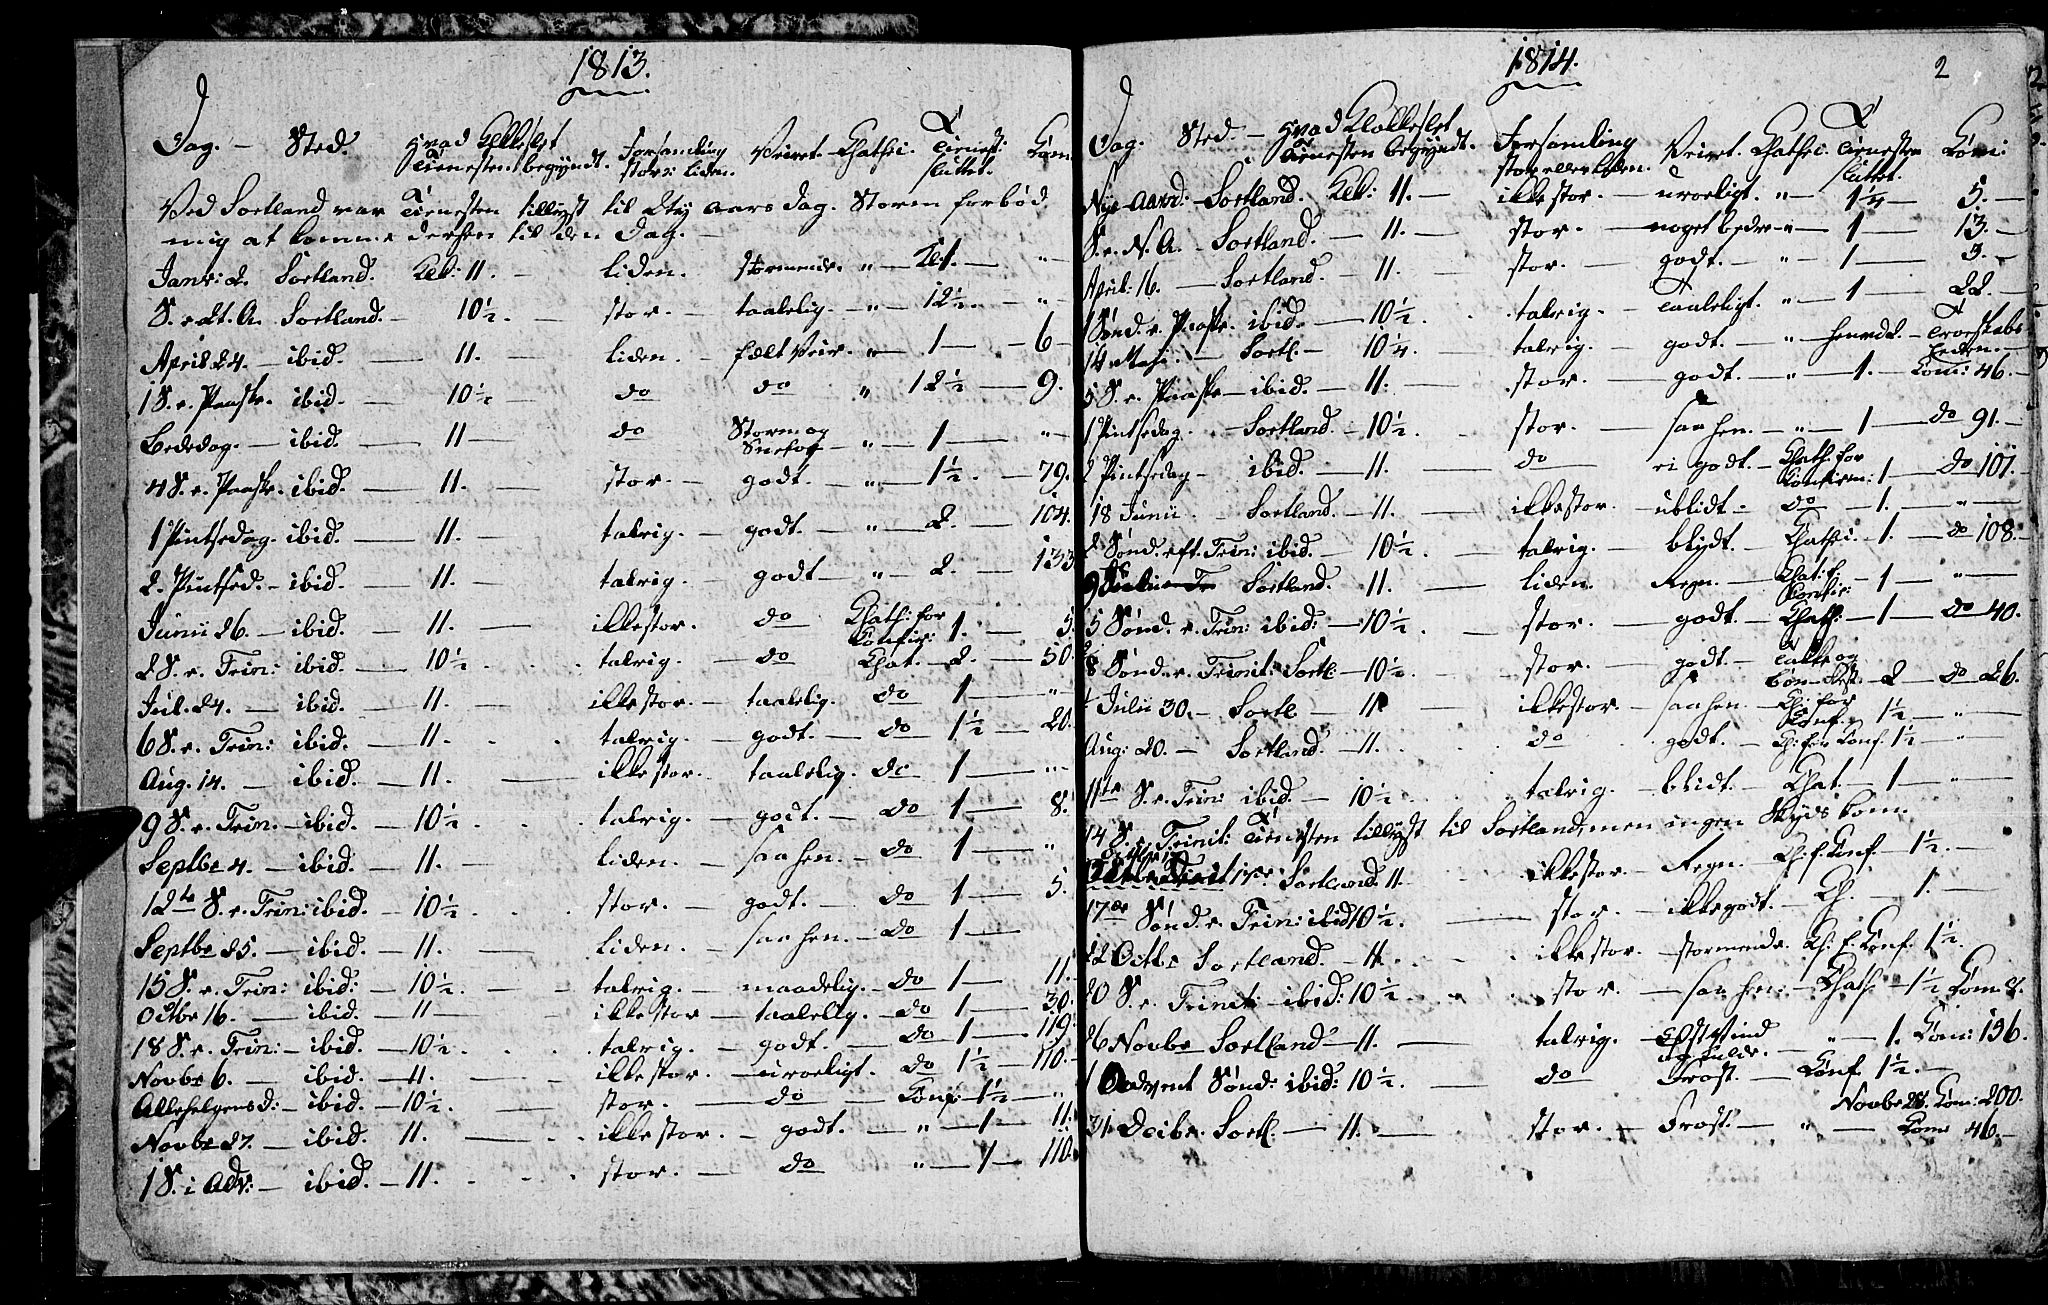 1813.
Dag. - Sted. Hvad Klokkeslet Tienesten begyndt. Forsamling stor: liden. Veiret. Chathi. Tienest: sluttet. Com:
Ved Sortland var Tienesten tillyst til Nyt Aars Dag. Storm forbød
mig at komme derhen til den Dag. -
Janr: 2. Sortland. Kl: 11. - liden. stormende. " - Kl 1. - "
S. e. Nt. A. Sortland. - 10½. - stor. - taalelig. - " - 12½. - "
April 24. - ibid. - 11. - liden. - fælt Veir. " - 1 - 6
1 S. e. Paaske. ibid. - 10½ - do do " 12½ - 9.
Bededag. - ibid. - 11 - do Storm og Snefog " - 1 - "
4 S. e. Paaske. ibid. - 11. - stor. - godt. - " - 1½. - 79.
1 Pintsedag. ibid. - 11. - talrig. - godt. - " - 2. - 104.
2. Pintsed. - ibid. - 11. - talrig. - godt - " - 2. - 133
Junii 26. - ibid. - 11. - ikke stor. do Chath: for Confir: 1. - 5.
2 S. e. Trin: ibid. - 10½. talrig. - do Chat. - 2. - 50.
Jul. 24. - ibid. - 11. - ikke stor. - taalelig. do 1 - "
6 S. e. Trin: ibid. - 11. talrig. - godt. - do - 1½ - 20.
Aug. 14. - ibid. - 11. - ikke stor. taalelig. do 1 - "
9 S. e. Trin. - ibid. - 10½ talrig. - godt. - do 1 - 8.
Septbr 4. - ibid. - 11. - liden. - saa hen. - do 1 - "
12te S. e. Trin: ibid. - 10½. stor. - godt. - do 1 - 5.
Septbr 25. - ibid. - 11. - liden. - saa hen. - do 1 -
15 S. e. Trin: ibid: - 10½. - talrig. - maadelig. - do 1 - 11.
Octbr 16. - ibid. - 11 - ikke stor - taalelig. - do 1 - 30.
18 S. e. Trin: - ibid. - 10½. talrig. - godt. - do - 1 - 119.
Novbr 6. - ibid. - 11. - ikke stor - uroeligt. do 1½ - 110.
Allehelgensd: - ibid. - 10½. - stor. - do - Conf: 1½ - "
Novbr 27. - ibid. 11. - ikke stor. - godt. - " - 1 - 11.
1 S. i Adv: - ibid. - 11. stor. - do " - 1 - 110.
1814.
2
Dag. Sted. - Hvad Klokkeslet Tienesten begyndt. Forsamling stor eller liden. Veiret. Chathi. Tienesten sluttet. Com:
Nye-Aarsd: - Sortland. Kl: 11. - ikke stor. - uroeligt. " - 1¼ - 5. -
S. e. N. A. - Sortland. - 11. - stor. - noget bedre - " - 1 - 13. -
April: 16. - Sortland. - 11. - stor. - godt. - " - 1 - 3. -
1 Sønd. e. Paaske. ibid. - 10½. talrig. - taaleligt. " - 1 - 22. -
14 Maji. - Sortl. - 10¼. - talrig. - godt. - "
5 S. e. Paaske - ibid. - 11. - stor. - godt. - " - 1. - Com: 46. -
1 Pintsedag. - Sortland. - 10½. stor. - saa hen. - " - 1 - do 91. -
2 Pintsedag - ibid. - 11. - do ei godt. - Chath: for Confirm: 1 - do 107. -
18 Junii. - Sortland. - 11. - ikke stor. - ublidt. - do - 1. - "
2 Sønd. eft. Trin: ibid. - 10½ - talrig. - blidt. - Chathi. - 1. - do 108. -
Sortland. 11. - liden. Regn. - Chat: f. Confir: - 1 - "
5 Sønd. e. Trin: ibid: - 10½. - stor. - godt. - Chath: - 1 - do - 40.
8 Sønd. e. Trinit: Sortl: - 10½. - stor. - godt. - Takke og Bøn-Fest: - 2 - do 26.
Julii 30. - Sortl. - 11 - ikke stor. - saa hen. - Ch: for Conf. 1½ - "
Aug: 20. - Sortland. - 11. do godt. - Ch: for Conf. 1½ - "
11te S. e. Trin: ibid. - 10½ talrig. - blidt. - Chat. - 1 - "
14 S. e. Trinit: Tienesten tillyst til Sortland, men ingen Skyds kom.
Sortland. 11. - ikke stor. - Regn. - Ch: f. Conf. - 1½. -
17de Sønd. e. Trin: ibid 10½. - stor. - ikke godt. - Ch. - 1. -
22 Octbr Sortland. - 11. - ikke stor. - stormende. Ch: f. Conf. 1½.
20 S. e. Trinit: - ibid: 10½ - stor. - saa hen. - Chath - 1½ Com
26 Novbr Sortland - 11. - talrig. Østvind og kulde. - " - 1. Com: 196.
1 Advent Sønd: ibid: 10½. - do Frost. - Conf. 1½. -
Novbr 28. Com: 200.
31 Decbr. Sortl. - 11. - stor. - Frost. - " - Com 46. -